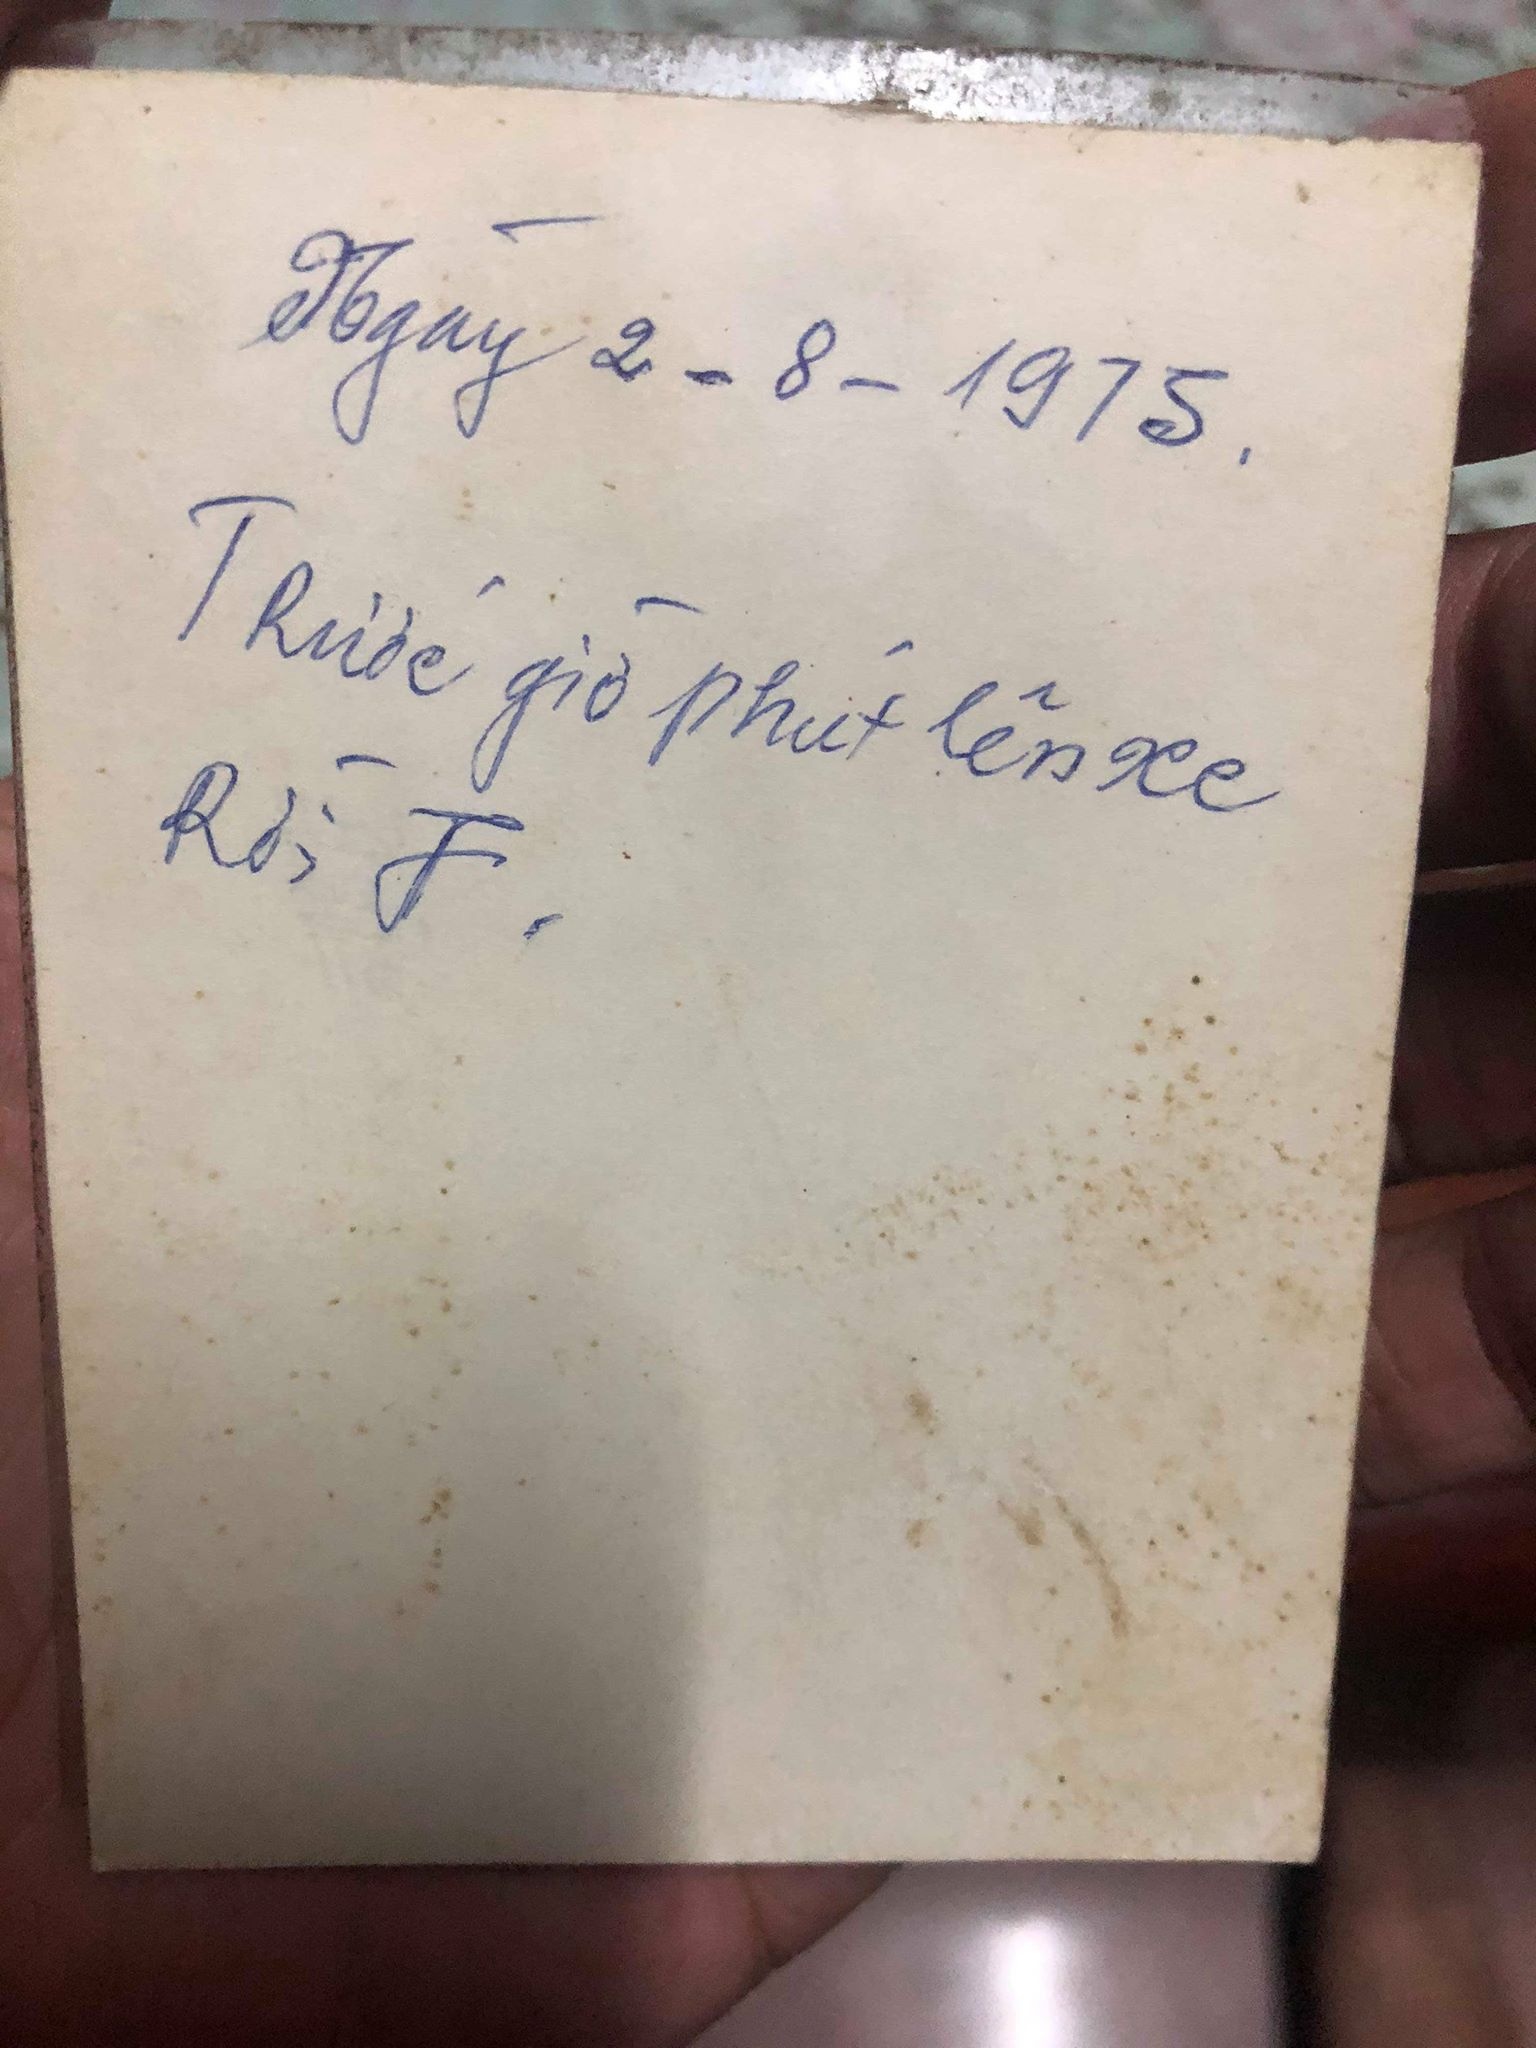 Ngày 2-8-1975.
Trước giờ phút lên xe
Rời F.